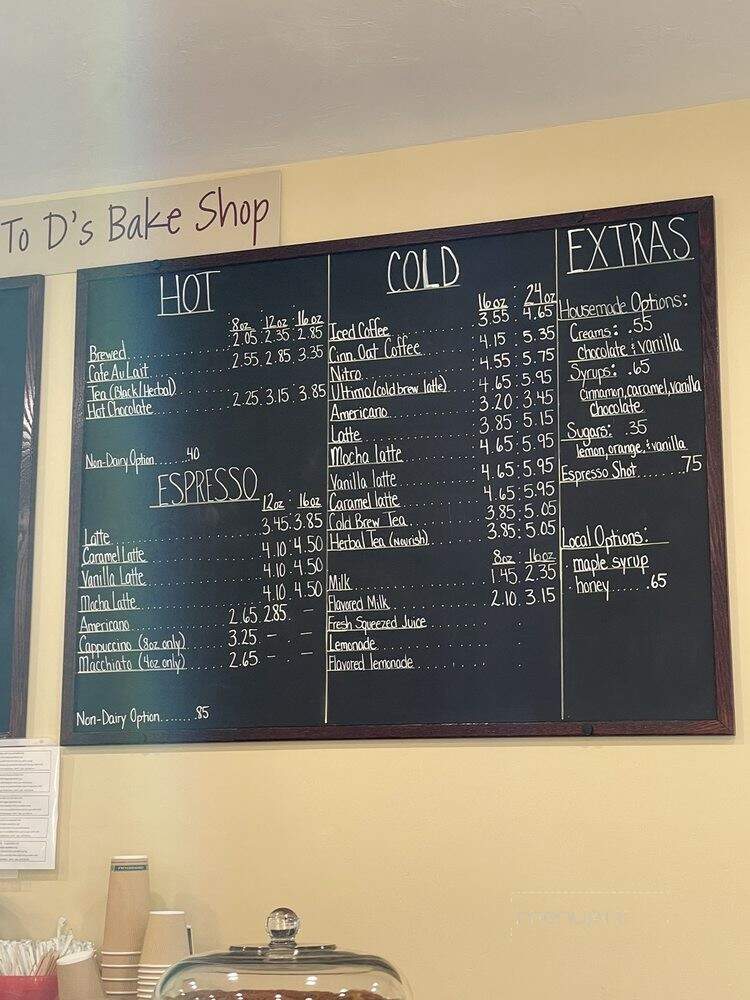 To D's Bake Shop
HOT
8oz 12oz 16oz
Brewed 2.05 2.35 2.85
Cafe Au Lait 2.55 2.85 3.35
Tea (Black/Herbal)
Hot Chocolate 2.25 3.15 3.85
Non-Dairy Option........40
ESPRESSO
12oz 16oz
Latte 3.45 3.85
Caramel Latte 4.10 4.50
Vanilla Latte 4.10 4.50
Mocha Latte 4.10 4.50
Americano 2.65 2.85 —
Cappuccino (8oz only) 3.25 — —
Macchiato (4oz only) 2.65 — —
Non-Dairy Option........85
COLD
16oz 24oz
Iced Coffee 3.55 4.65
Cinn Oat Coffee 4.15 5.35
Nitro 4.55 5.75
Ultimo (cold brew latte) 4.65 5.95
Americano 3.20 3.45
Latte 3.85 5.15
Mocha latte 4.65 5.95
Vanilla latte 4.65 5.95
Caramel latte 4.65 5.95
Cold Brew Tea 3.85 5.05
Herbal Tea (Nourish) 3.85 5.05
8oz 16oz
Milk 1.45 2.35
Flavored Milk 2.10 3.15
Fresh Squeezed Juice
Lemonade
Flavored lemonade
EXTRAS
Housemade Options:
Creams: .55
chocolate & vanilla
Syrups: .65
cinnamon, caramel, vanilla
chocolate
Sugars: .35
lemon, orange, & vanilla
Espresso Shot........75
Local Options:
maple syrup
honey........65